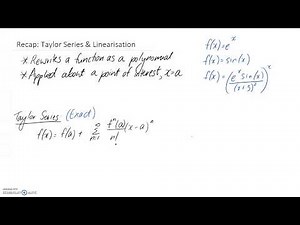 Recap: Taylor Series & Linearisation
* Rewrites a function as a polynomial
* Applied about a point of interest, x=a
f(x)=e^x
f(x)=sin(x)
f(x)=(e^x sin(x)/(x+5)^2)^x
Taylor Series (Exact)
f(x)= f(a) + ∑ f^n(a)/n! (x-a)^n